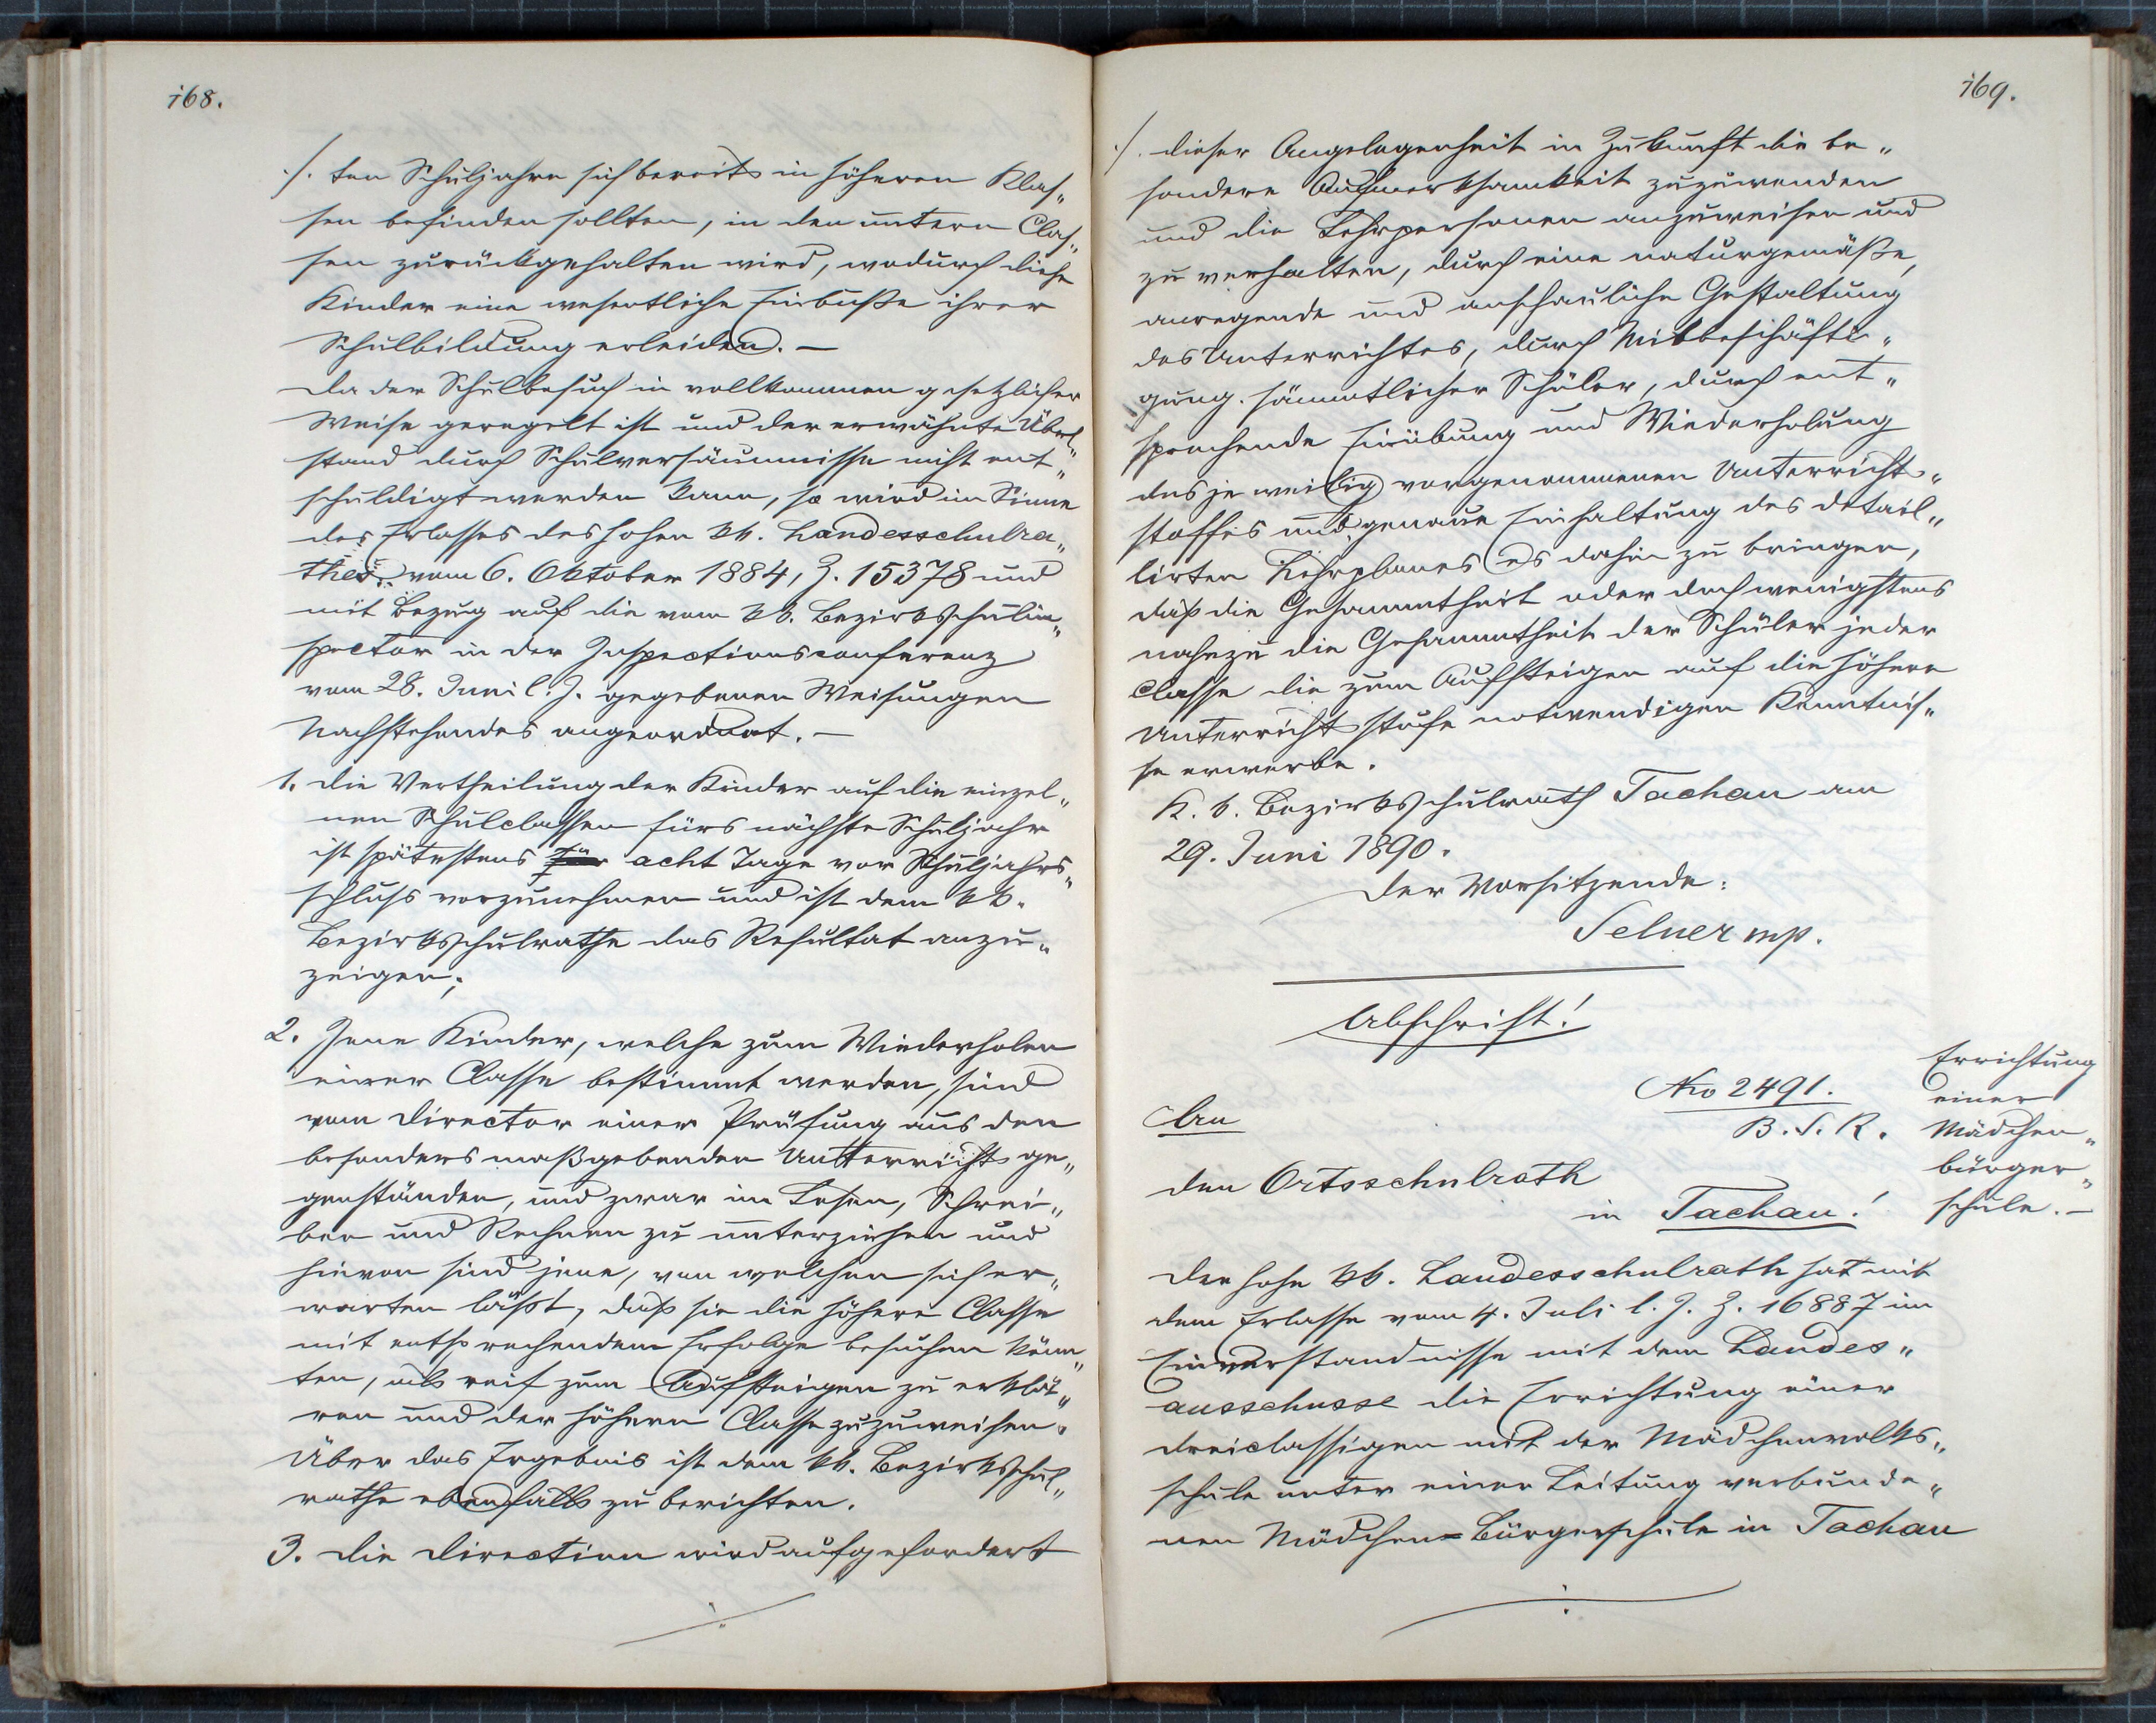 168.
./. ten Schuljahre sich bereits in höheren Klas„
sen befinden sollten, in den untern Clas„
sen zurückgehalten wird, wodurch diese
Kinder eine wesentliche Einbuße ihrer
Schulbildung erleiden. —
Da der Schulbesuch in vollkommen gesetzlicher
Weise geregelt ist und der erwähnte Übel„
stand durch Schulversäumnisse nicht ent„
schuldigt werden kann, so wird im Sinne
des Erlasses des hohen kk. Landesschulra„
thes vom 6. Oktober 1884, Z. 15378 und
mit Bezug auf die vom kk. Bezirksschulin„
spector in der Inspectionsconferenz
vom 28. Juni l. J. gegebenen Weisungen
Nachstehendes angeordnet. —
1. Die Vertheilung der Kinder auf die einzel„
nen Schulclassen fürs nächste Schuljahr
ist spätestens für acht Tage vor Schuljahrs„
schluss vorzunehmen und ist dem kk.
Bezirksschulrathe das Resultat anzu„
zeigen;
2. Jene Kinder, welche zum Wiederholen
einer Classe bestimmt werden, sind
vom Director einer Prüfung aus den
besonders maßgebenden Unterrichtsge„
genständen, und zwar im Lesen, Schrei„
ben und Rechnen zu unterziehen und
hievon sind jene, von welchen sich er„
warten läßt, daß sie die höhere Classe
mit entsprechendem Erfolge besuchen könn„
ten, als reif zum Aufsteigen zu erklä„
ren und der höhern Classe zuzuweisen.
Über das Ergebnis ist dem kk. Bezirksschul„
rathe ebenfalls zu berichten.
3. Die Direction wird aufgefordert
./.
169.
./. dieser Angelegenheit in Zukunft die be„
sondere Aufmerksamkeit zuzuwenden
und die Lehrpersonen anzuweisen und
zu verhalten, durch eine naturgemäße,
anregende und anschauliche Gestaltung
des Unterrichtes, durch Mitbeschäfti„
gung sämmtlicher Schüler, durch ent„
sprechende Einübung und Wiederholung
des jeweilig vorgenommenen Unterrichts„
stoffes und genaue Einhaltung des detail„
lirten Lehrplanes es dahin zu bringen,
daß die Gesammtheit oder doch wenigstens
nahezu die Gesammtheit der Schüler jeder
Classe die zum Aufsteigen auf die höhere
Unterrichtsstufe notwendigen Kenntnis„
se erwerbe.
K. k. Bezirksschulrath Tachau am
29. Juni 1890.
Der Vorsitzende:
Selner mp.
Abschrift!
No 2491.
B. S. R.
Errichtung
einer
Mädchen„
bürger„
schule. —
An
den Ortsschulrath
in Tachau!
Der hohe kk. Landesschulrath hat mit
dem Erlasse vom 4. Juli l. J. Z. 16887 im
Einverstandnisse mit dem Landes„
ausschusse die Errichtung einer
dreiclassigen mit der Mädchenvolks„
schule unter einer Leitung verbunde„
nen Mädchen=Bürgerschule in Tachau
./.